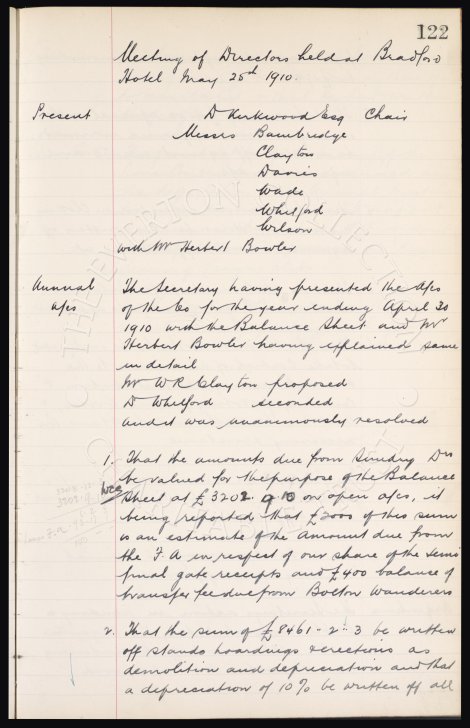 122
Meeting of Directors held at Bradford
Hotel May 25th 1910.
Present
D Kirkwood Esq Chair
Messrs Bainbridge
Clayton
Davies
Wade
Whitford
Wilson
with Mr Herbert Bowler
Annual
a/cs
The Secretary having presented the a/cs
of the Co for the year ending April 30
1910 with the Balance Sheet and Mr
Herbert Bowler having explained same
in detail
Mr W R Clayton proposed
D Whitford seconded
and it was unanimously resolved
1. That the amounts due from Sundry Drs
be valued for the purpose of the Balance
Sheet at £3202. 9 10 on open a/cs, it
being reported that £3000 of this sum
is an estimate of the amount due from
the F. A in respect of our share of the semi
final gate receipts and £400 balance of
transfer fee due from Bolton Wanderers
2. That the sum of £8461 - 2 - 3 be written
off stands hoardings & erections as
demolition and depreciation and that
a depreciation of 10% be written off all
THE EVERTON COLLECTION